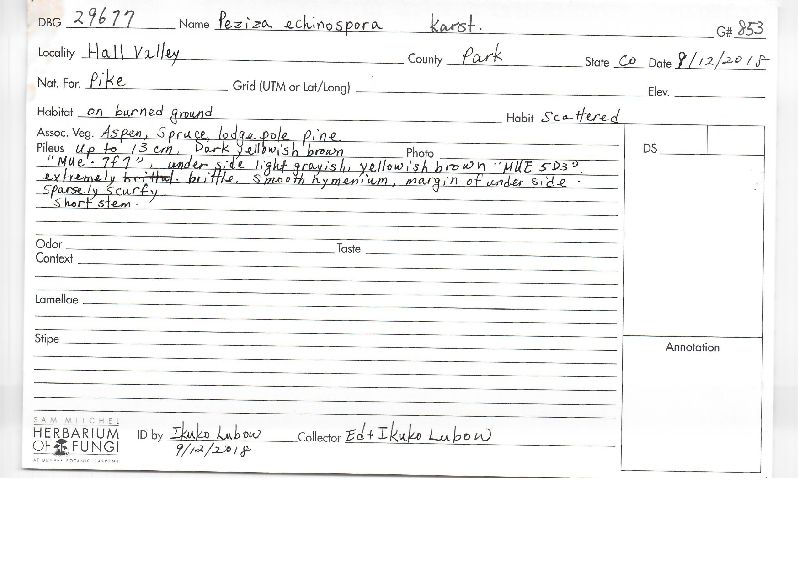 DBG 29677 Name Peziza echinospora Karst. G# 853
Locality Hall Valley County Park State CO Date 9/12/2018
Nat. For. Pike Grid (UTM or Lat/Long) Elev.
Habitat on burned ground Habit Scattered
Assoc. Veg. Aspen, Spruce, lodge pole pine DS
Pileus Up to 13 cm, Dark yellowish brown Photo
"MUE. 7f7", under side light grayish, yellowish brown "MUE 5D3".
extremely brittal. brittle, smooth hymenium, margin of under side.
sparsely scurfy
short stem.
Odor Taste
Context
Lamellae
Stipe
Annotation
SAM MITCHEL
HERBARIUM
OF FUNGI
AT DENVER BOTANIC GARDENS
ID by Ikuko Lubow Collector Ed + Ikuko Lubow
9/12/2018